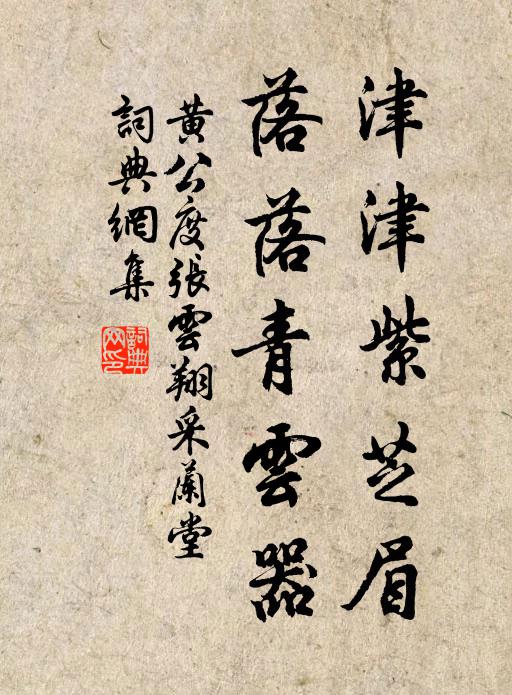 津津紫芝眉
落落青雲器
黃公度張雲翔采蘭堂
詞典網集
詞典網印